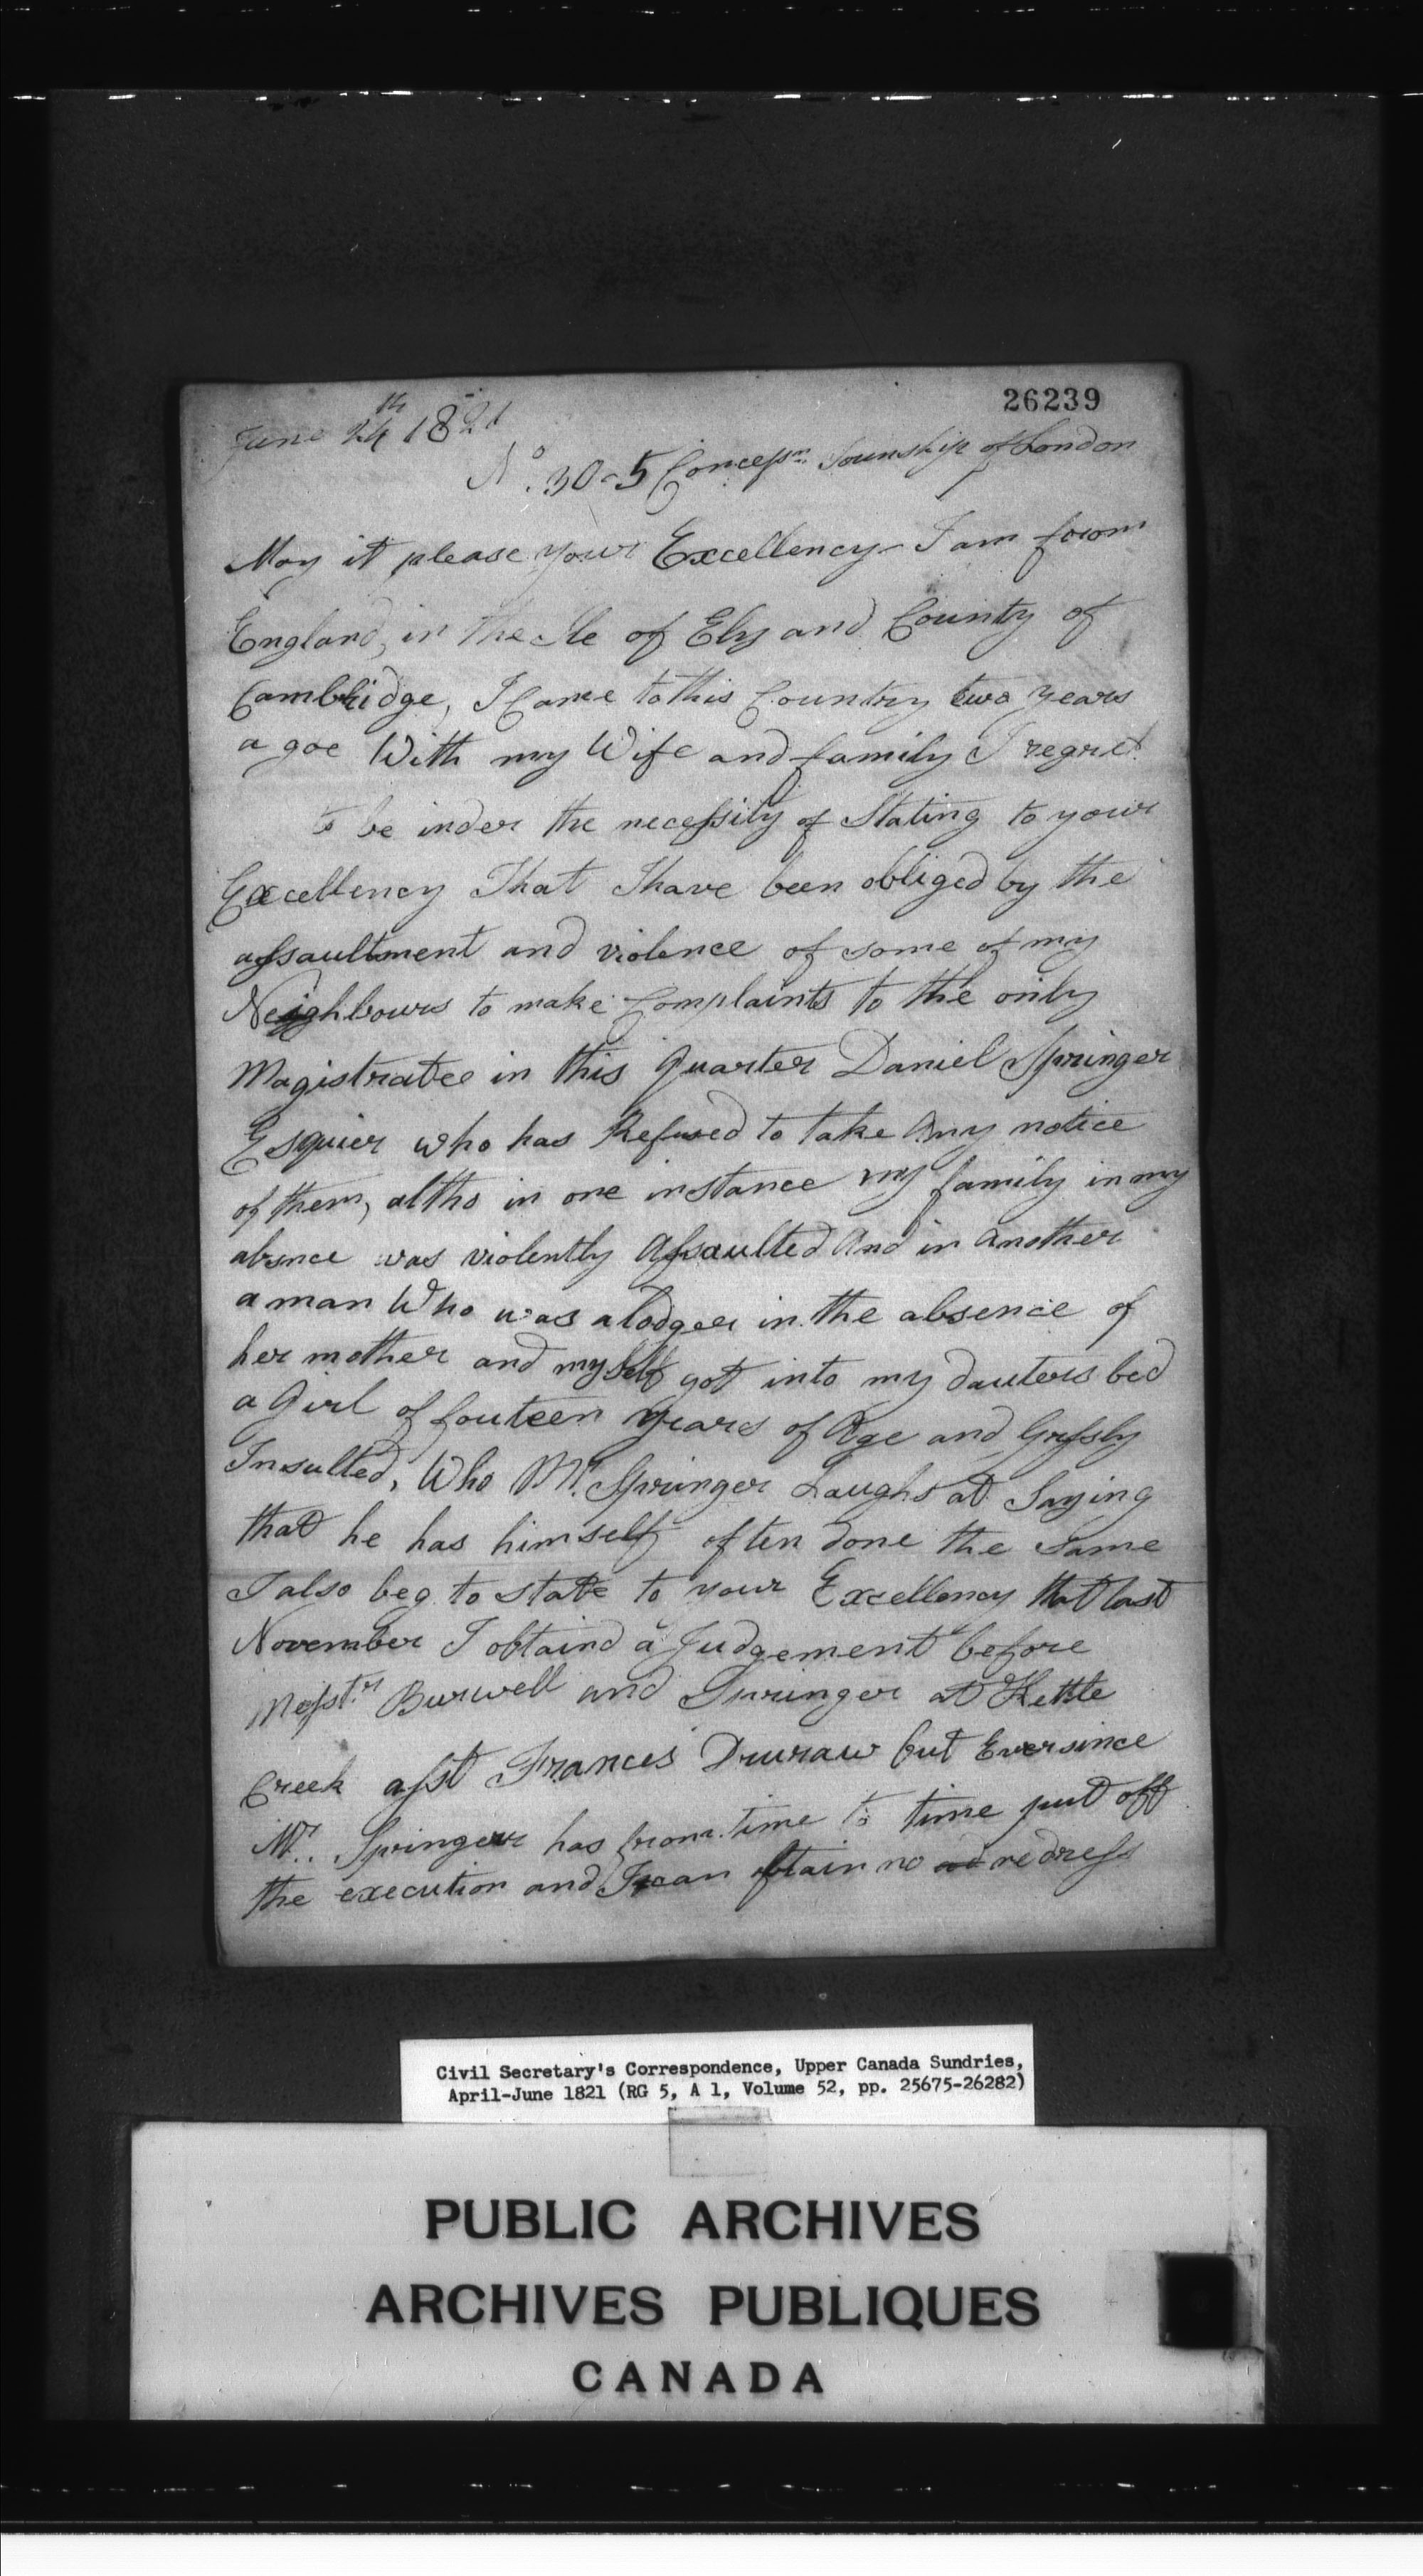 26239
June 24th 1821
No. 30-5 Concessn. Township of London
May it please your Excellency - I am forom
England, in the Ile of Ely and County of
Cambridge, I Came to this Country two years
a goe With my Wife and family I regret
to be inder the necessity of Stating to your
Excellency That I have been obliged by the
assaultment and violence of some of my
Neighbours to make Complaints to the only
Magistratee in this Quarter Daniel Springer
Esquier who has Refused to take Any notice
of them, altho in one instance my family in my
absnce was violently Assaulted And in another
a man Who was a lodger in the absence of
her mother and myself got into my dauters bed
a Girl of fouteen years of Age and Grssly
Insulted, Who Mr. Springer Laughs at Saying
that he has himself often done the same
I also beg to state to your Excellency that last
November I obtaind a Judgement before
Burwell and Springer at Kettle
Creek asst Frances Druraw but Ever since
Mr. Springer has from time to time put off
the execution and I can obtain no redress
Civil Secretary's Correspondence, Upper Canada Sundries,
April-June 1821 (RG 5, A 1, Volume 52, pp. 25675-26282)
PUBLIC ARCHIVES
ARCHIVES PUBLIQUES
CANADA